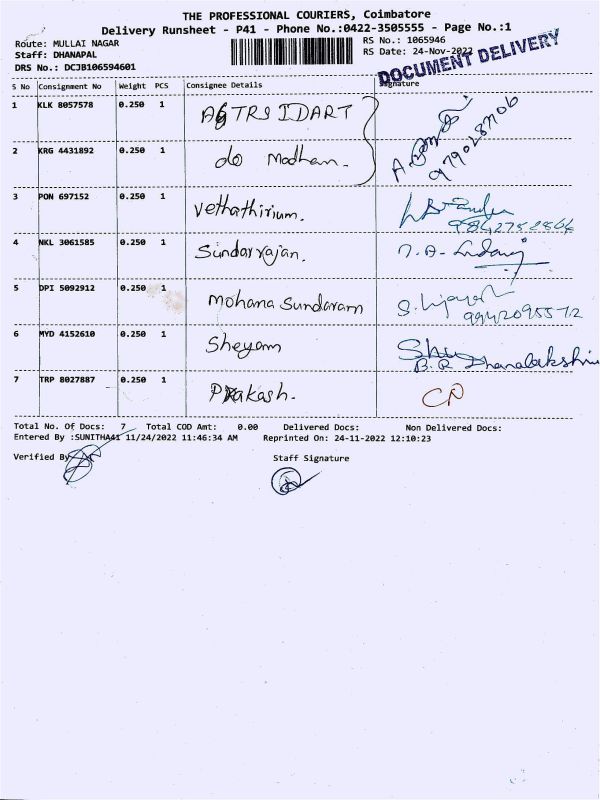 THE PROFESSIONAL COURIERS, Coimbatore
Delivery Runsheet - P41 - Phone No.:0422-3505555 - Page No.:1
Route: MULLAI NAGAR RS No.: 1065946
Staff: DHANAPAL RS Date: 24-Nov-2022
DOCUMENT DELIVERY
DRS No.: DCJB106594601
S No Consignment No Weight PCS Consignee Details Signature
1 KLK 8057578 0.250 1
2 KRG 4431892 0.250 1 do Madhan.
9790287706
3 PON 697152 0.250 1 Vethathirium.
9842752866
4 NKL 3061585 0.250 1 Sundarrajan.
5 DPI 5092912 0.250 1 Mohana Sundaram
9942095572
6 MYD 4152610 0.250 1 Sheyam
B.R Dhanalakshmi
7 TRP 8027887 0.250 1 Prakash.
Total No. Of Docs: 7 Total COD Amt: 0.00 Delivered Docs: Non Delivered Docs:
Entered By :SUNITHA41 11/24/2022 11:46:34 AM Reprinted On: 24-11-2022 12:10:23
Verified By Staff Signature